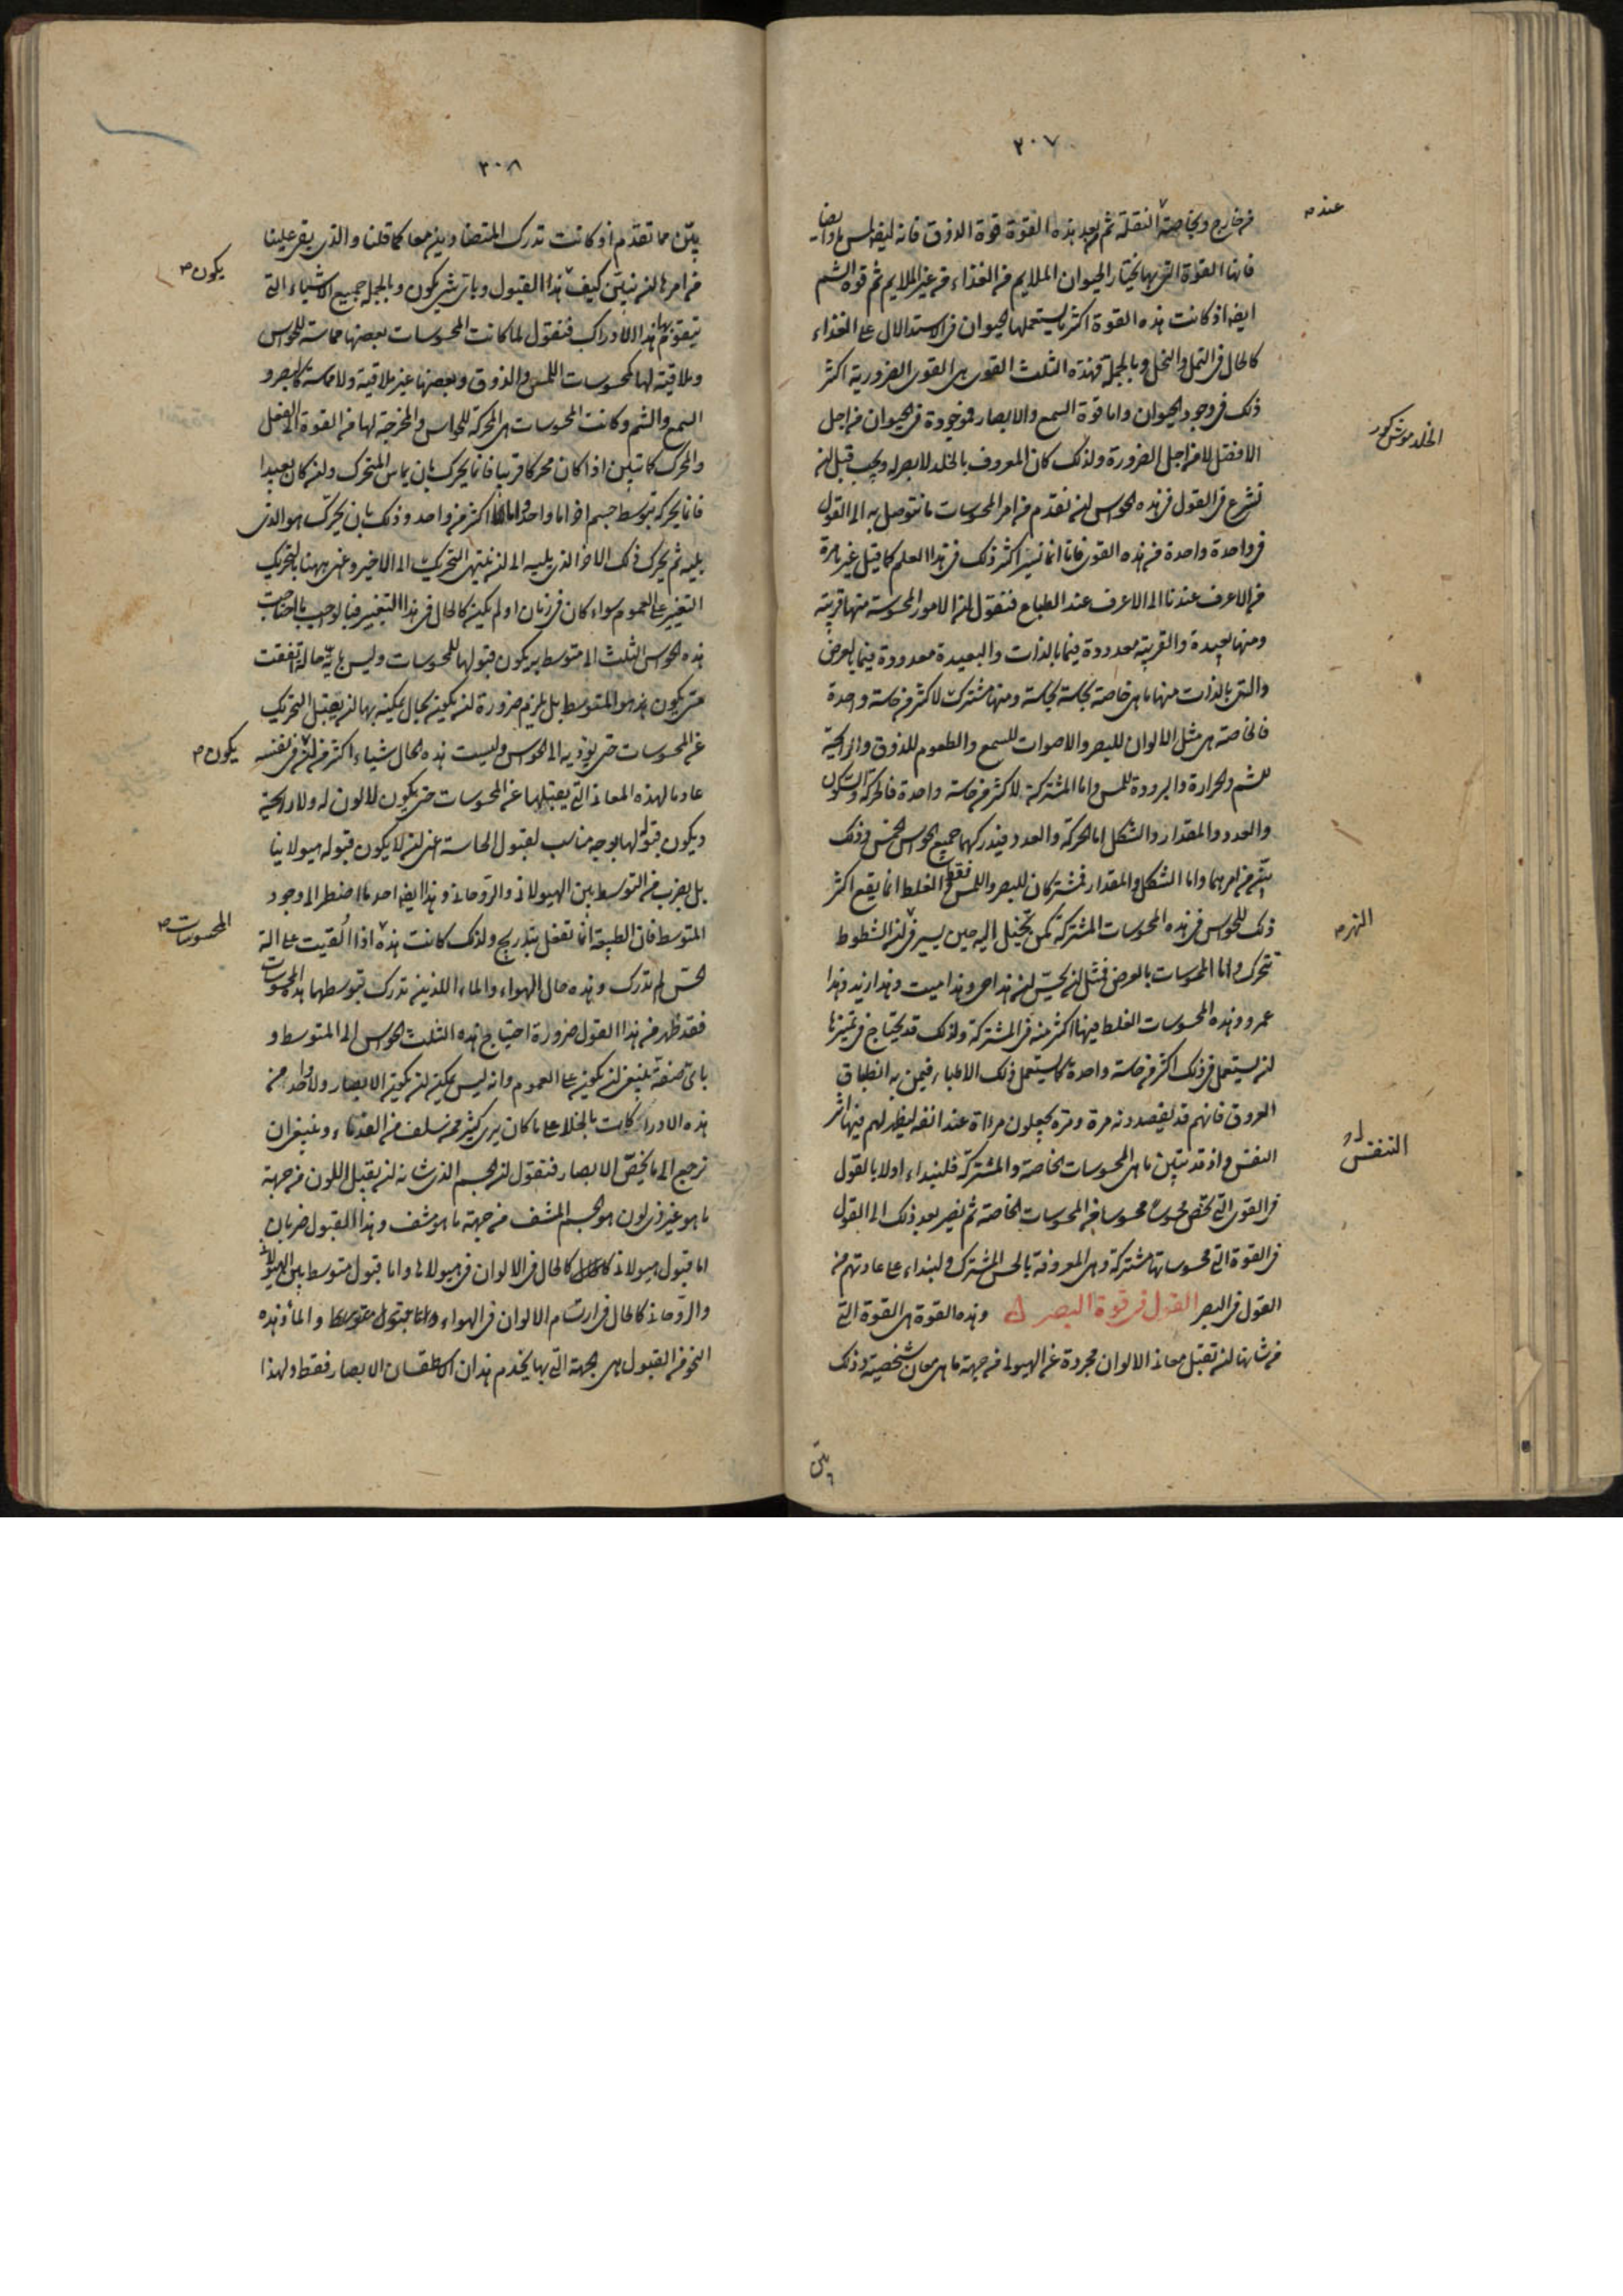 ٣٠٧
من خارج وبخاصة عند النقلة ثم من بعد هذه القوة قوة الذوق فانه ايضا لمس ما وايضا
فانها القوة التي بها يختار الحيوان الملايم من الغذاء من غير الملايم ثم قوة الشم
ايضا اذ كانت هذه القوة اكثر ما يستعملها الحيوان في الاستدلال على الغذاء
كالحال في النمل والنحل وبالجملة فهذه الثلث القوى هي القوى الضرورية اكثر
ذلك في وجود الحيوان واما قوة السمع والابصار فموجودة في الحيوان من اجل
الافضل لا من اجل الضرورة ولذلك كان المعروف بالخلد لا بصر له ويجب قبل ان
نشرع في القول في هذه الحواس ان نقدم من امر المحسوسات ما نتوصل به الى القول
في واحدة واحدة من هذه القوى فانا انما نسير اكثر ذلك في هذا العلم كما قيل غير ما مرة
من الاعرف عندنا الى الاعرف عند الطباع فنقول ان الامور المحسوسة منها قريبة
ومنها بعيدة والقريبة معدودة فيما بالذات والبعيدة معدودة فيما بالعرض
والتي بالذات منها ما هي خاصة بحاسة بحاسة ومنها مشتركة لاكثر من حاسة واحدة
فالخاصة هي مثل الالوان للبصر والاصوات للسمع والطعوم للذوق والرائحة
للشم والحرارة والبرودة للمس واما المشتركة لاكثر من حاسة واحدة فالحركة والسكون
والعدد والمقدار والشكل اما الحركة والعدد فيدركهما جميع الحواس الخمس وذلك
بين من امرهما واما الشكل والمقدار فمشتركان للبصر واللمس فقط والغلط انما يقع اكثر
ذلك للحواس في هذه المحسوسات المشتركة كمن يخيل اليه حين يسير في النهر ان الشطوط
تتحرك واما المحسوسات بالعرض فمثل ان يحس ان هذا حي وهذا ميت وهذا زيد وهذا
عمرو وهذه المحسوسات الغلط فيها اكثر منه في المشتركة ولذلك قد يحتاج في تميزها
ان يستعمل في ذلك اكثر من حاسة واحدة كما يستعمل ذلك الاطباء فيمن به انطباق
العروق فانهم قد يفصدونه مرة ومرة يجعلون مرءاة عند انفه ليظهر لهم فيها اثر
النفس واذ قد تبين ما هي المحسوسات الخاصة والمشتركة فلنبداء اولا بالقول
في القوى التي تخص محسوسا محسوسا من المحسوسات الخاصة ثم نصير بعد ذلك الى القول
في القوة التي محسوساتها مشتركة وهي المعروفة بالحس المشترك ولنبداء على عادتهم من
القول في البصر القول في قوة البصر وهذه القوة هي القوة التي
من شانها ان تقبل معاني الالوان مجردة عن الهيولى من جهة ما هي معان شخصية وذلك
بين
عند
الخلد موش كور
النهر
التنفس
٣٠٨
بين مما تقدم اذ كانت تدرك المتضادين معا كما قلنا والذي بقي علينا
من امرها ان نبين كيف يكون هذا القبول وباي شي يكون وبالجملة جميع الاشياء التي
يتقوم بها هذا الادراك فنقول لما كانت المحسوسات بعضها مماسة للحواس
وملاقية لها كمحسوسات اللمس والذوق وبعضها غير ملاقية ولا مماسة كالبصر و
السمع والشم وكانت المحسوسات هي المحركة للحواس والمخرجة لها من القوة الى الفعل
والمحرك كما تبين اذا كان محركا قريبا فانما يحرك بان يماس المتحرك وان كان بعيدا
فانما يحركه بتوسط جسم اخر اما واحد واما اكثر من واحد وذلك بان يحرك هو الذي
يليه ثم يحرك ذلك الاخر الذي يليه الى ان ينتهي التحريك الى الاخير واعني ههنا بالتحريك
التغيير على العموم سواء كان في زمان او لم يكن كالحال في هذا التغيير فبالواجب ما احتاجت
هذه الحواس الثلث الى متوسط به يكون قبولها للمحسوسات وليس باية حالة اتفقت
متى يكون هذا المتوسط بل يلزم ضرورة ان يكون بحال يمكن بها ان يقبل التحريك
عن المحسوسات حتى يؤديه الى الحواس وليست هذه الحال شياء اكثر من ان يكون في نفسه
عادما لهذه المعاني التي يقبلها عن المحسوسات حتى يكون لا لون له ولا رائحة
ويكون قبوله لها بوجه مناسب لقبول الحاسة اعني ان لا يكون قبوله هيولانيا
بل بضرب من التوسط بين الهيولاني والروحاني وهذا ايضا احد ما اضطر الى وجود
المتوسط فان الطبيعة انما تفعل بتدريج ولذلك كانت هذه المحسوسات اذا القيت على الة
الحس لم تدرك وهذه حال الهواء والماء اللذين تدرك بتوسطهما هذه المحسوسات
فقد ظهر من هذا القول ضرورة احتياج هذه الثلث الحواس الى المتوسط و
باي صفة ينبغي ان يكون على العموم وانه ليس يمكن ان يكون الابصار ولا واحد من
هذه الادراكات بالخلاء على ما كان يرى كثير ممن سلف من القدماء وينبغي ان
نرجع الى ما يخص الابصار فنقول ان الجسم الذي شانه ان يقبل اللون من جهة
ما هو غير ذي لون هو الجسم المشف من جهة ما هو مشف وهذا القبول ضربان
اما قبول هيولاني كالحال في الالوان في هيولاها واما قبول متوسط بين الهيولاني
والروحاني كالحال في ارتسام الالوان في الهواء والماء وهذه
النحو من القبول هي الجهة التي بها يخدم هذان الاسطقسان الابصار فقط ولهذا
يكون
يكون
المحسوسات